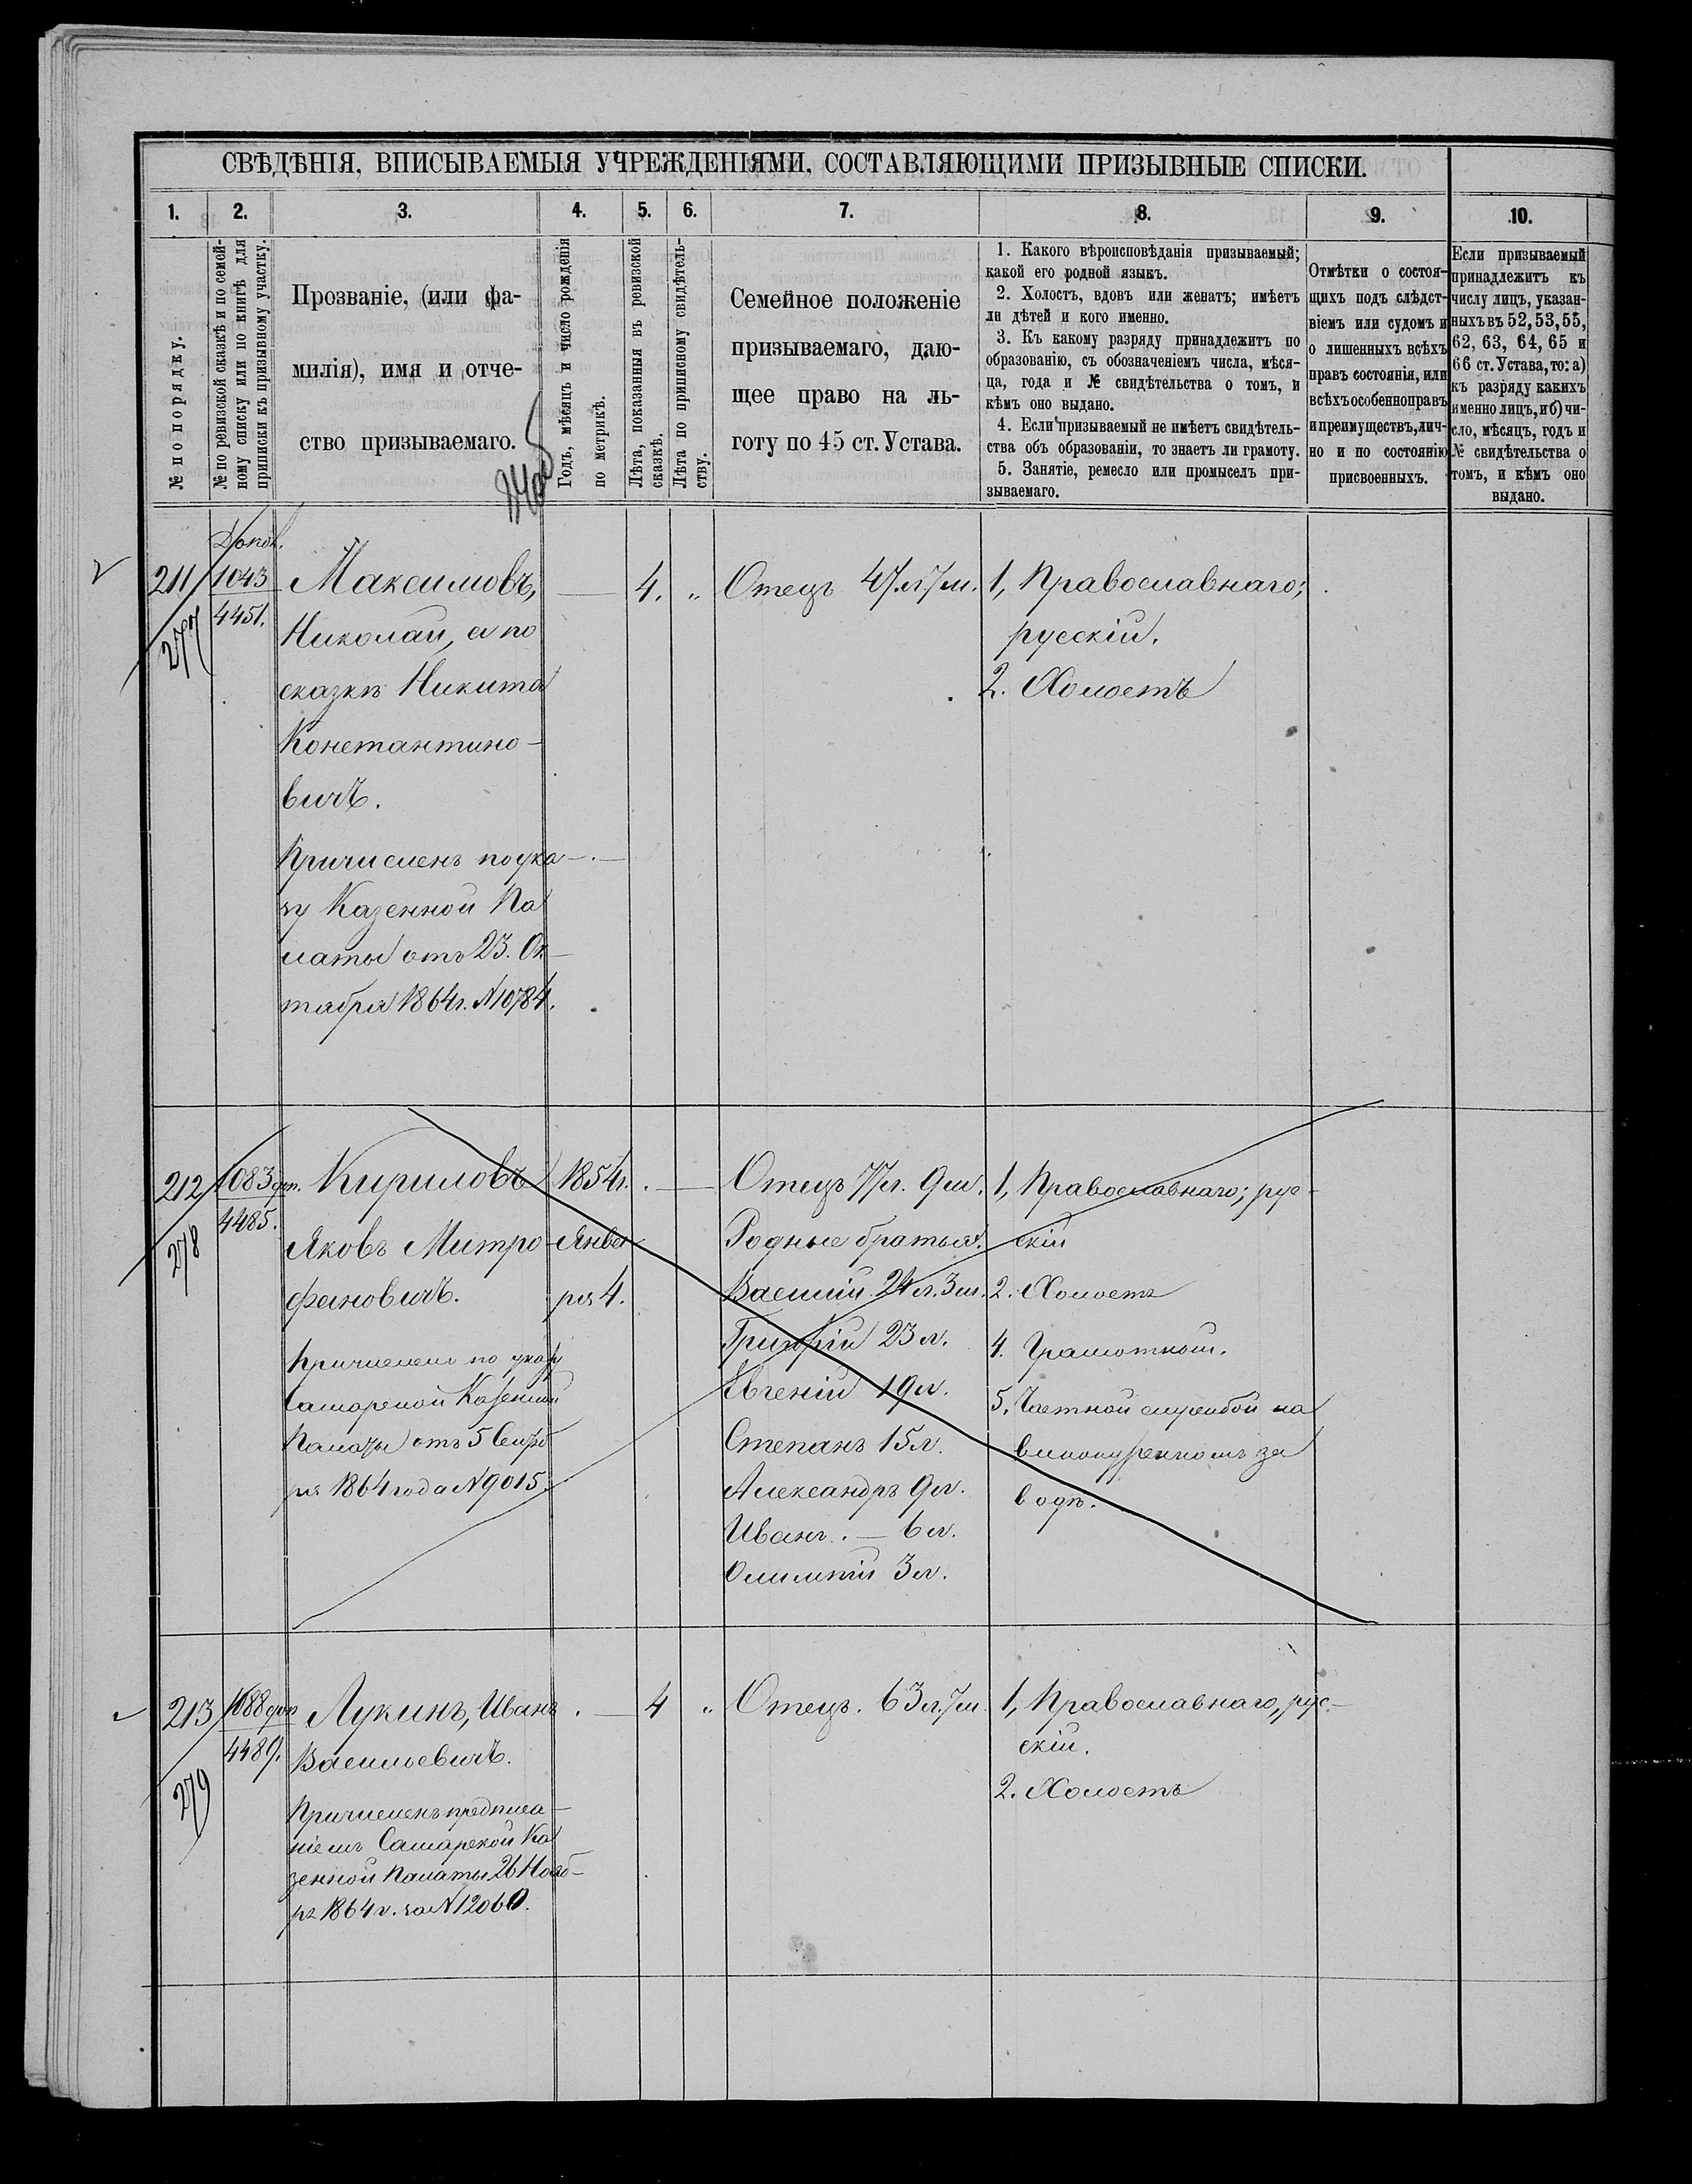 СВѢДѢНІЯ, ВПИСЫВАЕМЫЯ УЧРЕЖДЕНІЯМИ, СОСТАВЛЯЮЩИМИ ПРИЗЫВНЫЕ СПИСКИ.
1.
2.
3.
4.
5.
6.
7.
8.
9.
10.
№ по порядку.
№ по ревизской сказкѣ и по семей-
ному списку или по книгѣ для
приписки къ призывному участку.
Прозваніе, (или фа-
милія), имя и отче-
ство призываемаго.
Годъ, мѣсяцъ и число рожденія
по метрикѣ.
Лѣта, показанныя въ ревизской
сказкѣ.
Лѣта по приписному свидѣтель-
ству.
Семейное положеніе
призываемаго, даю-
щее право на ль-
готу по 45 ст. Устава.
1. Какого вѣроисповѣданія призываемый;
какой его родной языкъ.
2. Холостъ, вдовъ или женатъ; имѣетъ
ли дѣтей и кого именно.
3. Къ какому разряду принадлежитъ по
образованію, съ обозначеніемъ числа, мѣся-
ца, года и № свидѣтельства о томъ, и
кѣмъ оно выдано.
4. Если призываемый не имѣетъ свидѣтель-
ства объ образованіи, то знаетъ ли грамоту.
5. Занятіе, ремесло или промыселъ при-
зываемаго.
Отмѣтки о состоя-
щихъ подъ слѣдст-
віемъ или судомъ и
о лишенныхъ всѣхъ
правъ состоянія, или
всѣхъ особенно правъ
и преимуществъ, лич-
но и по состоянію
присвоенныхъ.
Если призываемый
принадлежитъ къ
числу лицъ, указан-
ныхъ въ 52, 53, 55,
62, 63, 64, 65 и
66 ст. Устава, то: а)
къ разряду какихъ
именно лицъ, и б) чи-
сло, мѣсяцъ, годъ и
№ свидѣтельства о
томъ, и кѣмъ оно
выдано.
211
277
Допол.
1043
4451.
Максимовъ,
Николай, а по
сказкѣ Никита
Константино-
вичъ.
Причисленъ по ука-
зу Казенной Па
латы отъ 23. Ок-
тября 1864 г. № 10784.
4.
„
Отецъ 47 л. 7 м.
1, Православнаго;
русскій.
2. Холостъ
212
278
1083 доп.
4485.
Кириловъ
Яковъ Митро-
фановичъ.
Причисленъ по указу
Самарской Казенной
Палаты отъ 5 Сентяб
ря 1864 года № 9015.
1854 г.
Янва
ря 4.
Отецъ 77 л. 9 м.
Родные братья.
Василій 24 л. 3 м.
Григорій 23 л.
Евгеній 19 л.
Степанъ 15 л.
Александръ 9 л.
Иванъ. — 6 л.
Олимпій 3 л.
1, Православнаго; рус-
скій
2. Холостъ
4. Грамотный.
5. Частной службой на
винокуренномъ за
водѣ.
213
279
1088 доп
4489.
Лукинъ, Иванъ
Васильевичъ.
Причисленъ предписа-
ніемъ Самарской Ка
зенной Палаты 26 Нояб-
ря 1864 г. за № 12060.
4
„
Отецъ. 63 л. 7 м.
1, Православнаго, рус-
скій.
2. Холостъ